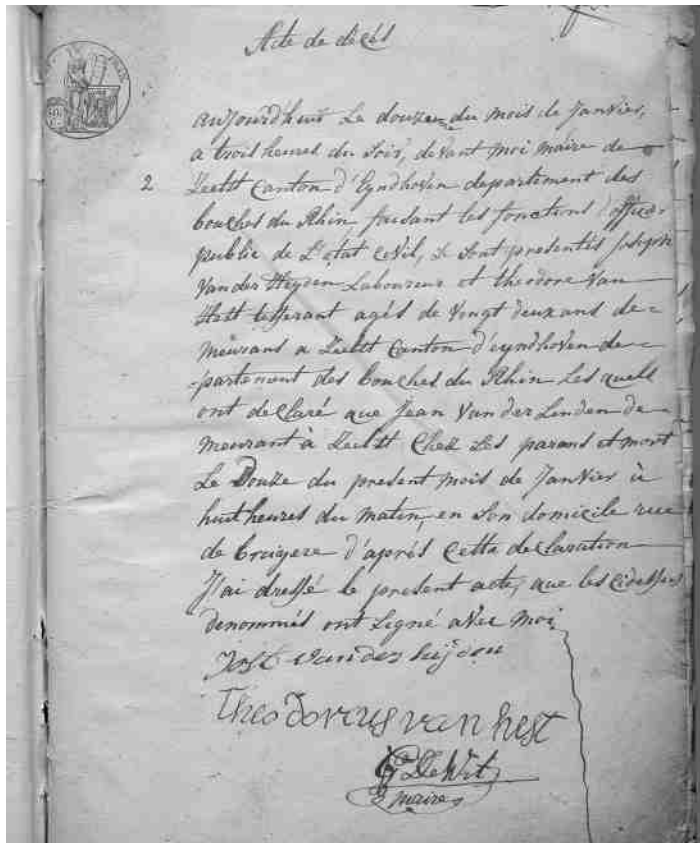 Acte de décès
aujourd'hui le douze du mois de Janvier,
a trois heures du soir, devant moi maire de
2 Zeelst Canton d'Eyndhoven departement des
bouches du Rhin, faisant les fonctions d'officier
public de L'état Civil, se sont presentés Joseph
Van der Heyden Laboureur et theodore Van
Hest tisserant agés de Vingt deux ans de=
meurans a Zeelst Canton d'eyndhoven de=
partement des bouches du Rhin Les quels
ont declaré que Jean Van der Linden de=
meurant à Zeelst Chez Les parans et mort
Le Douze du present mois de Janvier à
huit heures du matin, en Son domicile rue
de bruyere d'après Cette declaration
J'ai dressé le present acte, que les cidessus
denommés ont Signé avec moi
van der heijden
Theodorus van hest
De Wit
maire